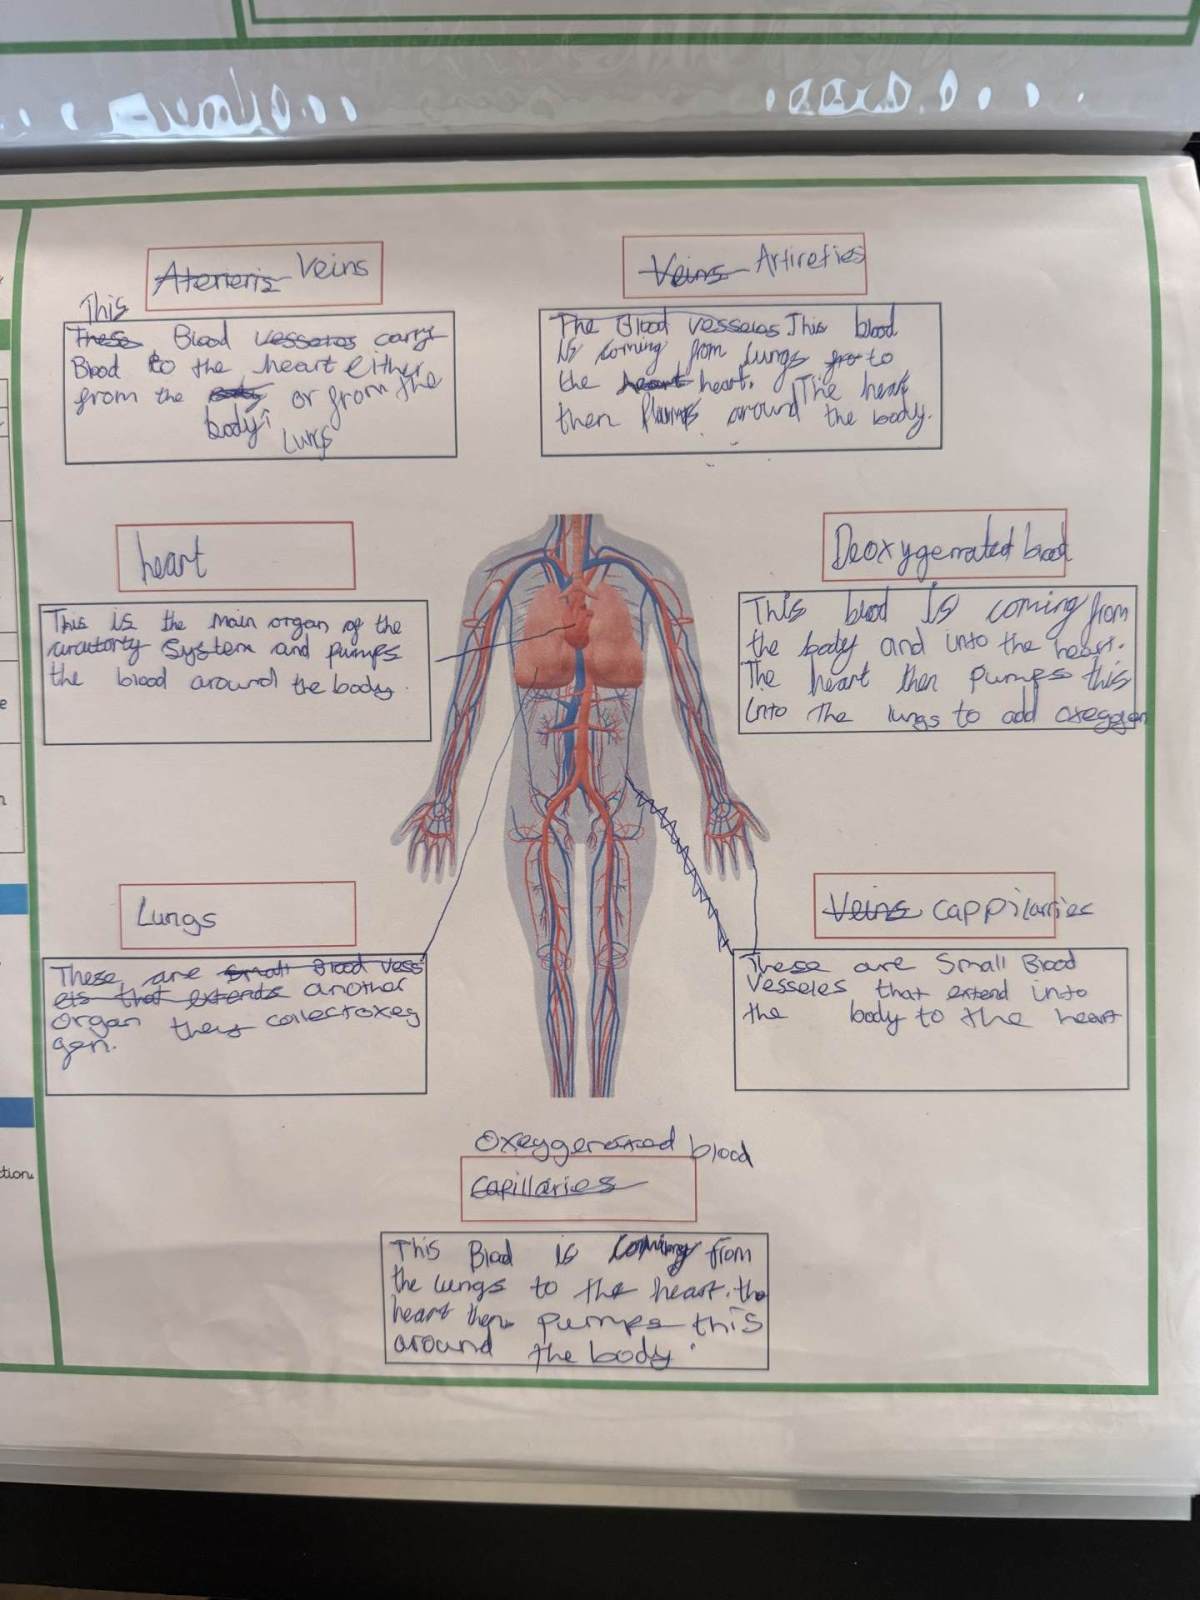 Aterieris Veins
This
These Blood vesseles carry
Blood to the heart either
from the or from the
body
Lungs
Veins Artirefies
The Blood vesseles This blood
is coming from lungs to
the heart heart. The heart
then around the body.
heart
This is the main organ of the
system and pumps
the blood around the body.
Deoxygenrated blood
This blood is coming from
the body and into the heart.
The heart then pumps this
into the lungs to add oxeggen
Lungs
These, are small Blood vess
els that extends another
organ they collect oxeg
gen.
Veins cappilarries
These are Small Blood
Vesseles that extend into
the body to the heart
Oxeygenated blood
capillaries
This Blood is coming from
the lungs to the heart. the
heart then pumps this
around the body.
e
n
ction.